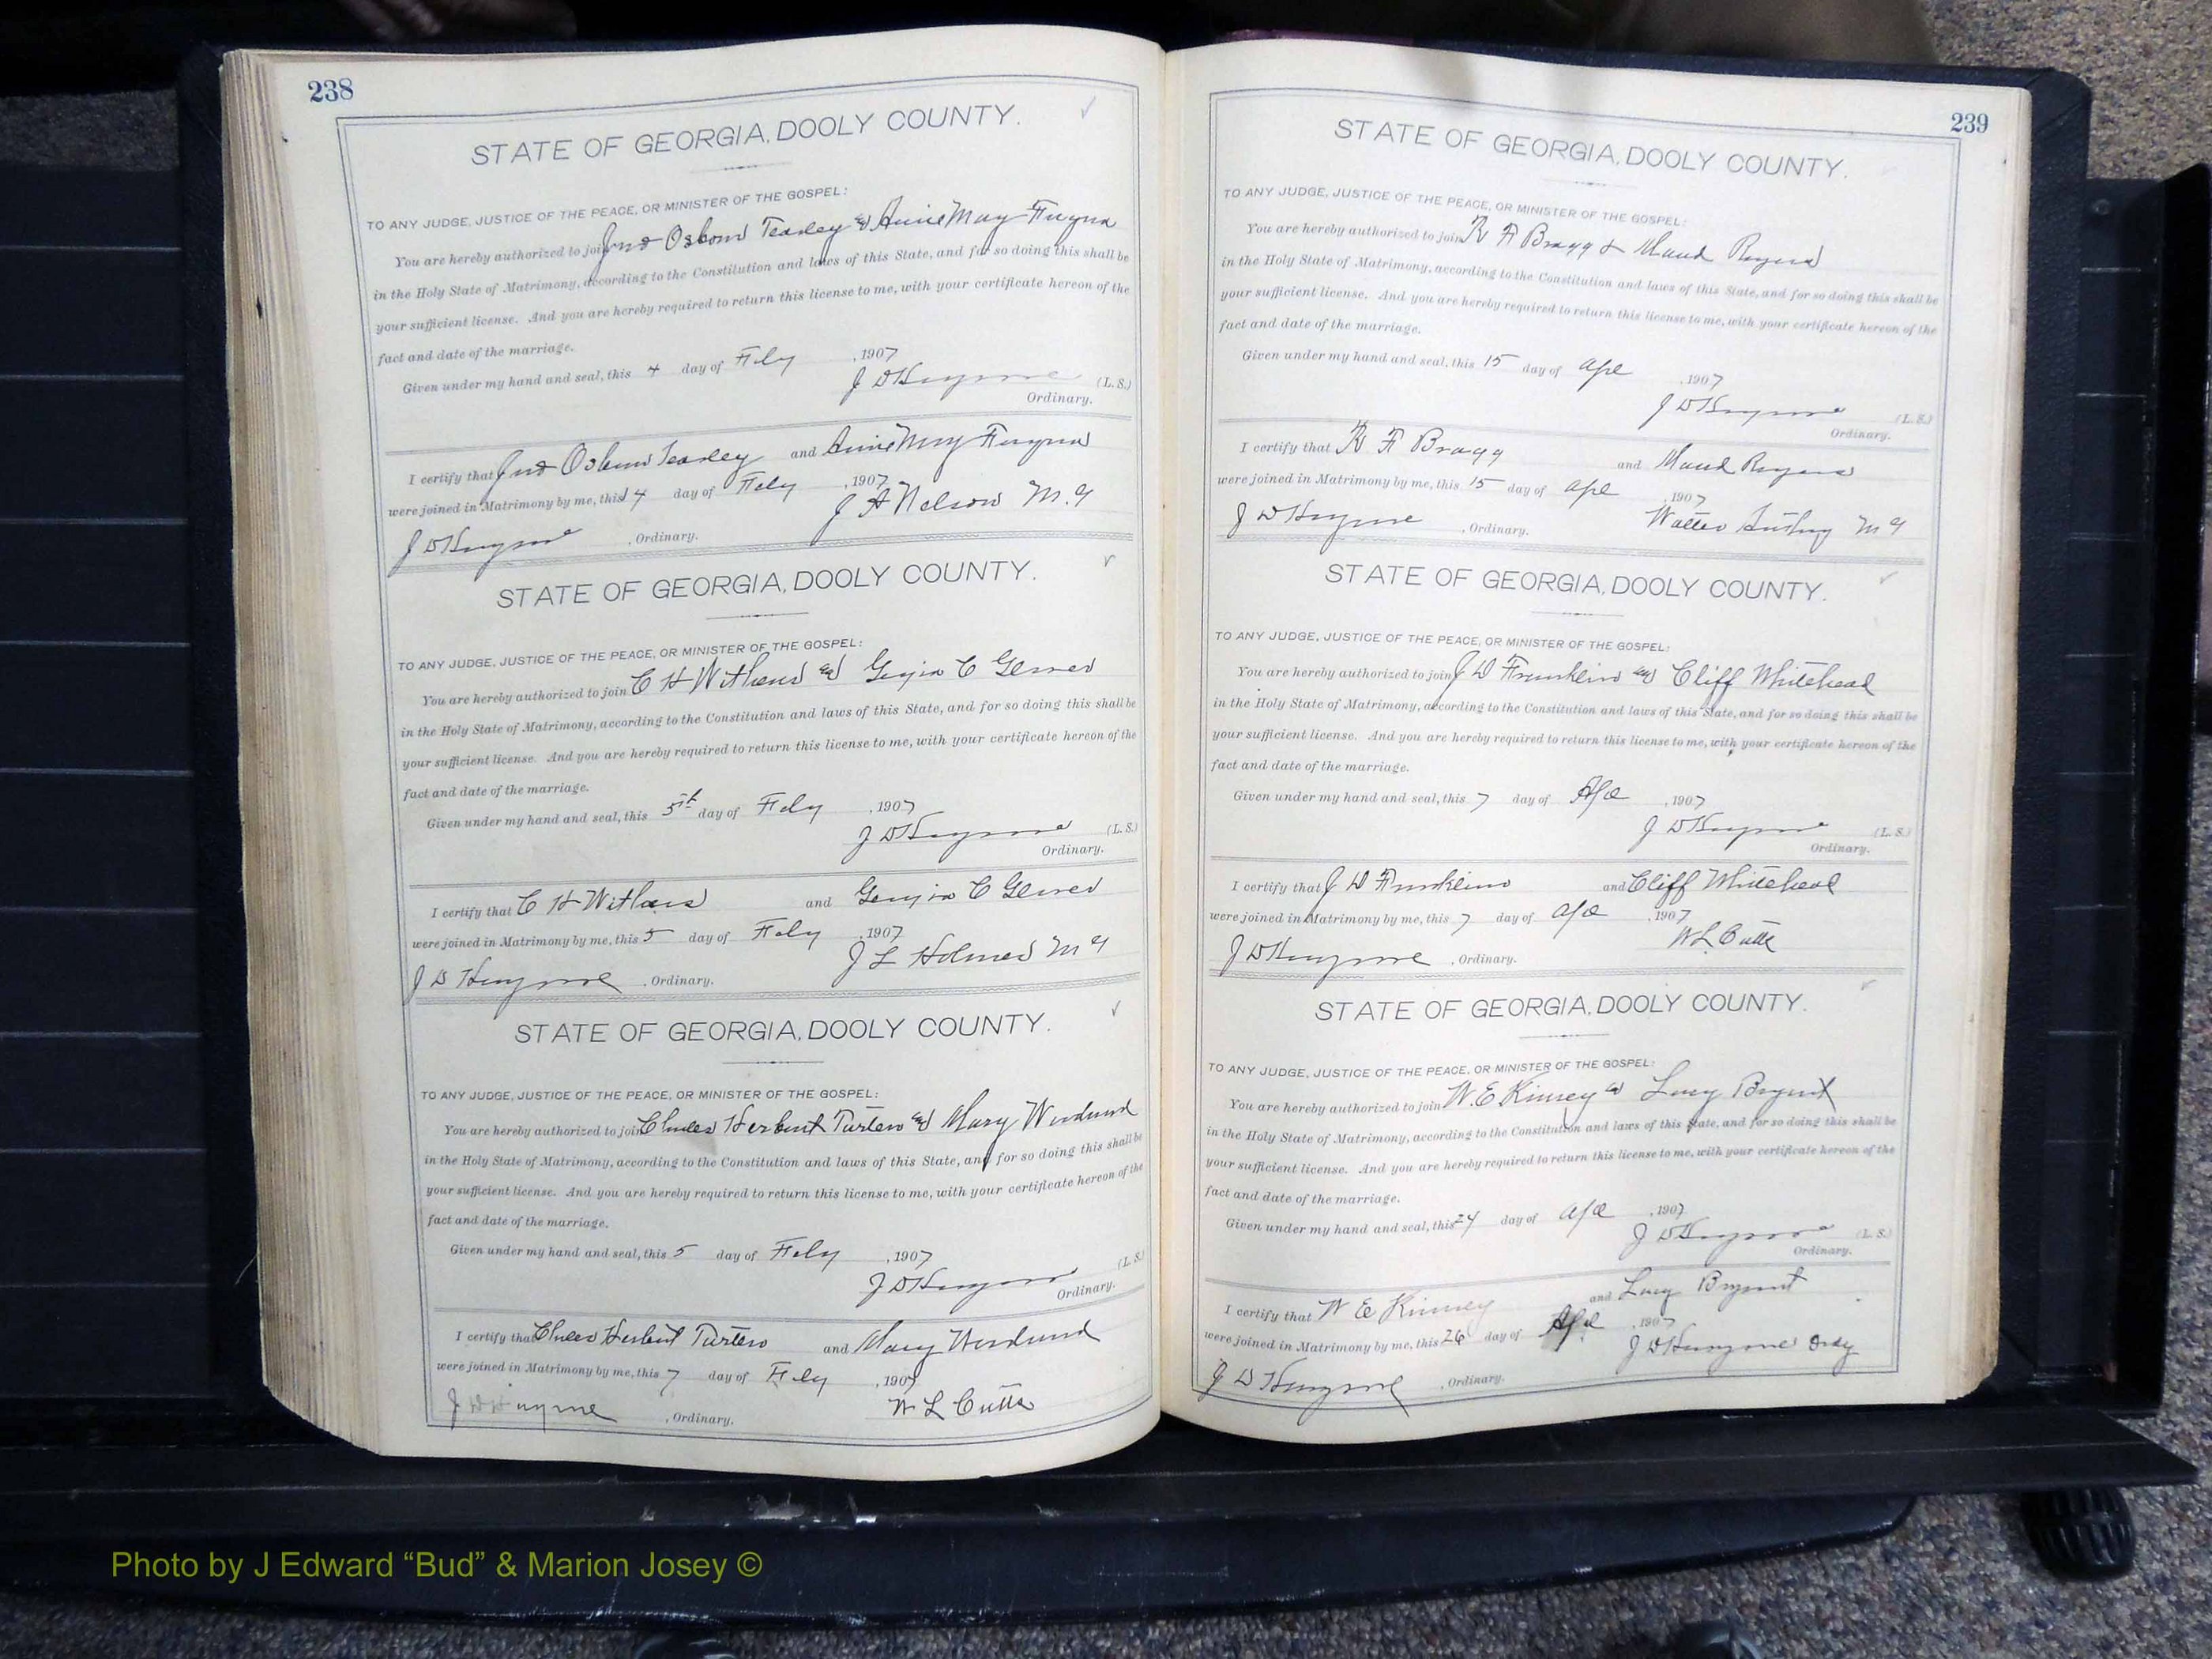 238
STATE OF GEORGIA, DOOLY COUNTY.
TO ANY JUDGE, JUSTICE OF THE PEACE, OR MINISTER OF THE GOSPEL:
You are hereby authorized to join Jno Osborn Teasley & Annie May
in the Holy State of Matrimony, according to the Constitution and laws of this State, and for so doing this shall be
your sufficient license. And you are hereby required to return this license to me, with your certificate hereon of the
fact and date of the marriage.
Given under my hand and seal, this 4 day of Feby, 1907
J D Hargrove (L. S.)
Ordinary.
I certify that Jno Osborn Teasley and Annie May
were joined in Matrimony by me, this 14 day of Feby, 1907
J A Nelson M.G
J D Hargrove, Ordinary.
STATE OF GEORGIA, DOOLY COUNTY.
TO ANY JUDGE, JUSTICE OF THE PEACE, OR MINISTER OF THE GOSPEL:
You are hereby authorized to join C H Withers & C
in the Holy State of Matrimony, according to the Constitution and laws of this State, and for so doing this shall be
your sufficient license. And you are hereby required to return this license to me, with your certificate hereon of the
fact and date of the marriage.
Given under my hand and seal, this 5th day of Feby, 1907
J D Hargrove (L. S.)
Ordinary.
I certify that C H Withers and C
were joined in Matrimony by me, this 5 day of Feby, 1907
J L Holmes M G
J D Hargrove, Ordinary.
STATE OF GEORGIA, DOOLY COUNTY.
TO ANY JUDGE, JUSTICE OF THE PEACE, OR MINISTER OF THE GOSPEL:
You are hereby authorized to join Charles Herbert Turton & Mary Woodward
in the Holy State of Matrimony, according to the Constitution and laws of this State, and for so doing this shall be
your sufficient license. And you are hereby required to return this license to me, with your certificate hereon of the
fact and date of the marriage.
Given under my hand and seal, this 5 day of Feby, 1907
J D Hargrove (L. S.)
Ordinary.
I certify that Charles Herbert Turton and Mary Woodward
were joined in Matrimony by me, this 7 day of Feby, 1907
W L Cutts
J D Hargrove, Ordinary.
239
STATE OF GEORGIA, DOOLY COUNTY.
TO ANY JUDGE, JUSTICE OF THE PEACE, OR MINISTER OF THE GOSPEL:
You are hereby authorized to join R F Bragg & Maud Rogers
in the Holy State of Matrimony, according to the Constitution and laws of this State, and for so doing this shall be
your sufficient license. And you are hereby required to return this license to me, with your certificate hereon of the
fact and date of the marriage.
Given under my hand and seal, this 15 day of Apl, 1907
J D Hargrove (L. S.)
Ordinary.
I certify that R F Bragg and Maud Rogers
were joined in Matrimony by me, this 15 day of Apl, 1907
Walter M G
J D Hargrove, Ordinary.
STATE OF GEORGIA, DOOLY COUNTY.
TO ANY JUDGE, JUSTICE OF THE PEACE, OR MINISTER OF THE GOSPEL:
You are hereby authorized to join J D Franklin & Cliff Whitehead
in the Holy State of Matrimony, according to the Constitution and laws of this State, and for so doing this shall be
your sufficient license. And you are hereby required to return this license to me, with your certificate hereon of the
fact and date of the marriage.
Given under my hand and seal, this 7 day of Apl, 1907
J D Hargrove (L. S.)
Ordinary.
I certify that J D Franklin and Cliff Whitehead
were joined in Matrimony by me, this 7 day of Apl, 1907
W L Cutts
J D Hargrove, Ordinary.
STATE OF GEORGIA, DOOLY COUNTY.
TO ANY JUDGE, JUSTICE OF THE PEACE, OR MINISTER OF THE GOSPEL:
You are hereby authorized to join W. E Kinsey & Lucy Bryant
in the Holy State of Matrimony, according to the Constitution and laws of this State, and for so doing this shall be
your sufficient license. And you are hereby required to return this license to me, with your certificate hereon of the
fact and date of the marriage.
Given under my hand and seal, this 24 day of Apl, 1907
J D Hargrove (L. S.)
Ordinary.
I certify that W E Kinsey and Lucy Bryant
were joined in Matrimony by me, this 26 day of Apl, 1907
J D Hargrove Ordy
J D Hargrove, Ordinary.
Photo by J Edward “Bud” & Marion Josey ©